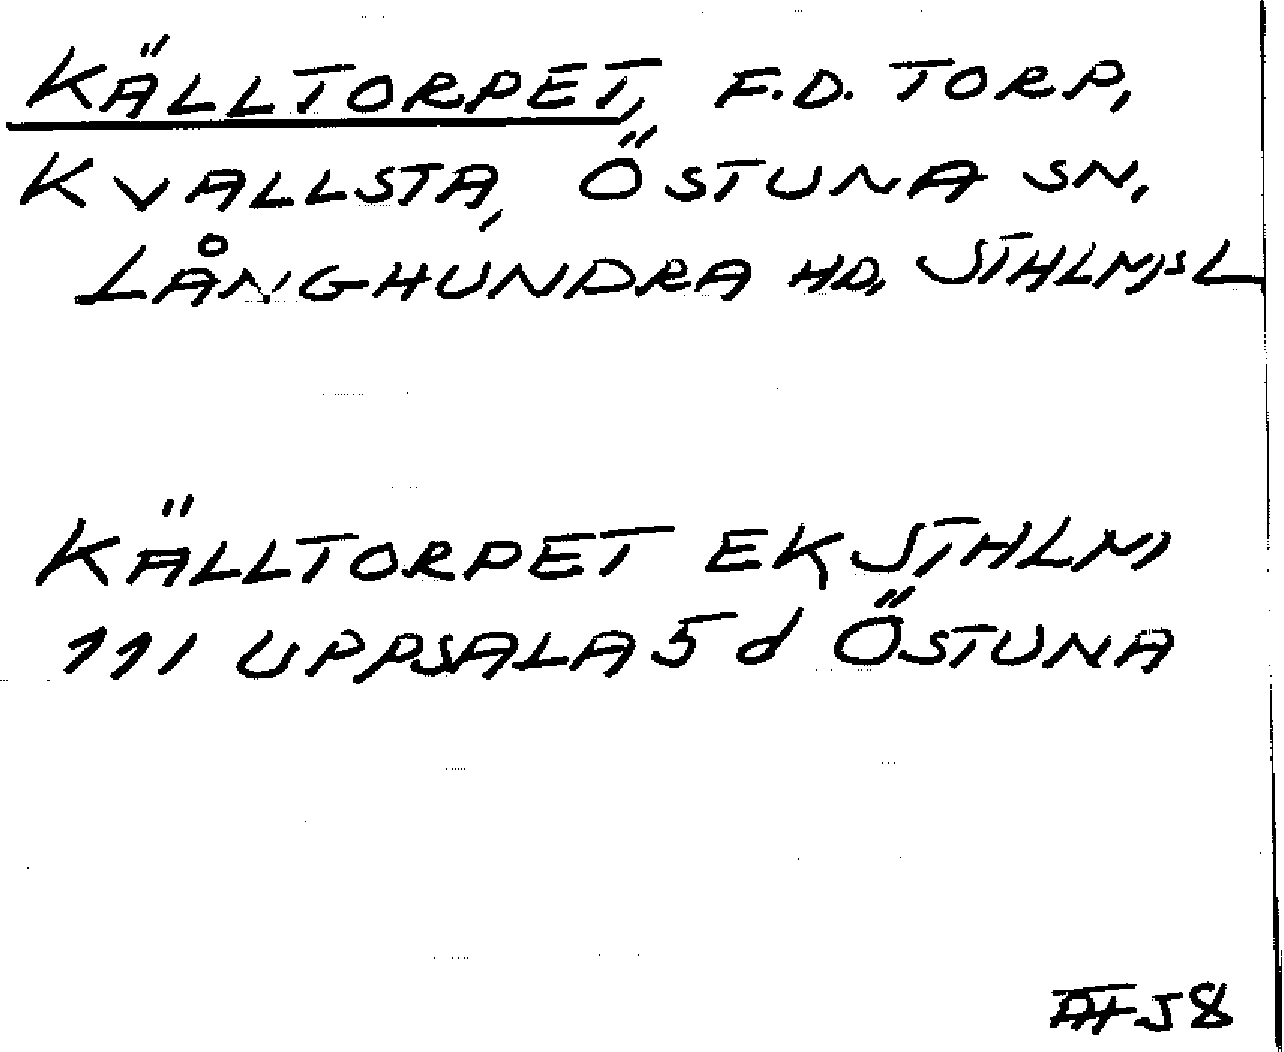 KÄLLTORPET, F.D. TORP,
KVALLSTA, ÖSTUNA SN,
LÅNGHUNDRA HD, STHLMS L
KÄLLTORPET EK STHLM
111 UPPSALA 5 d ÖSTUNA